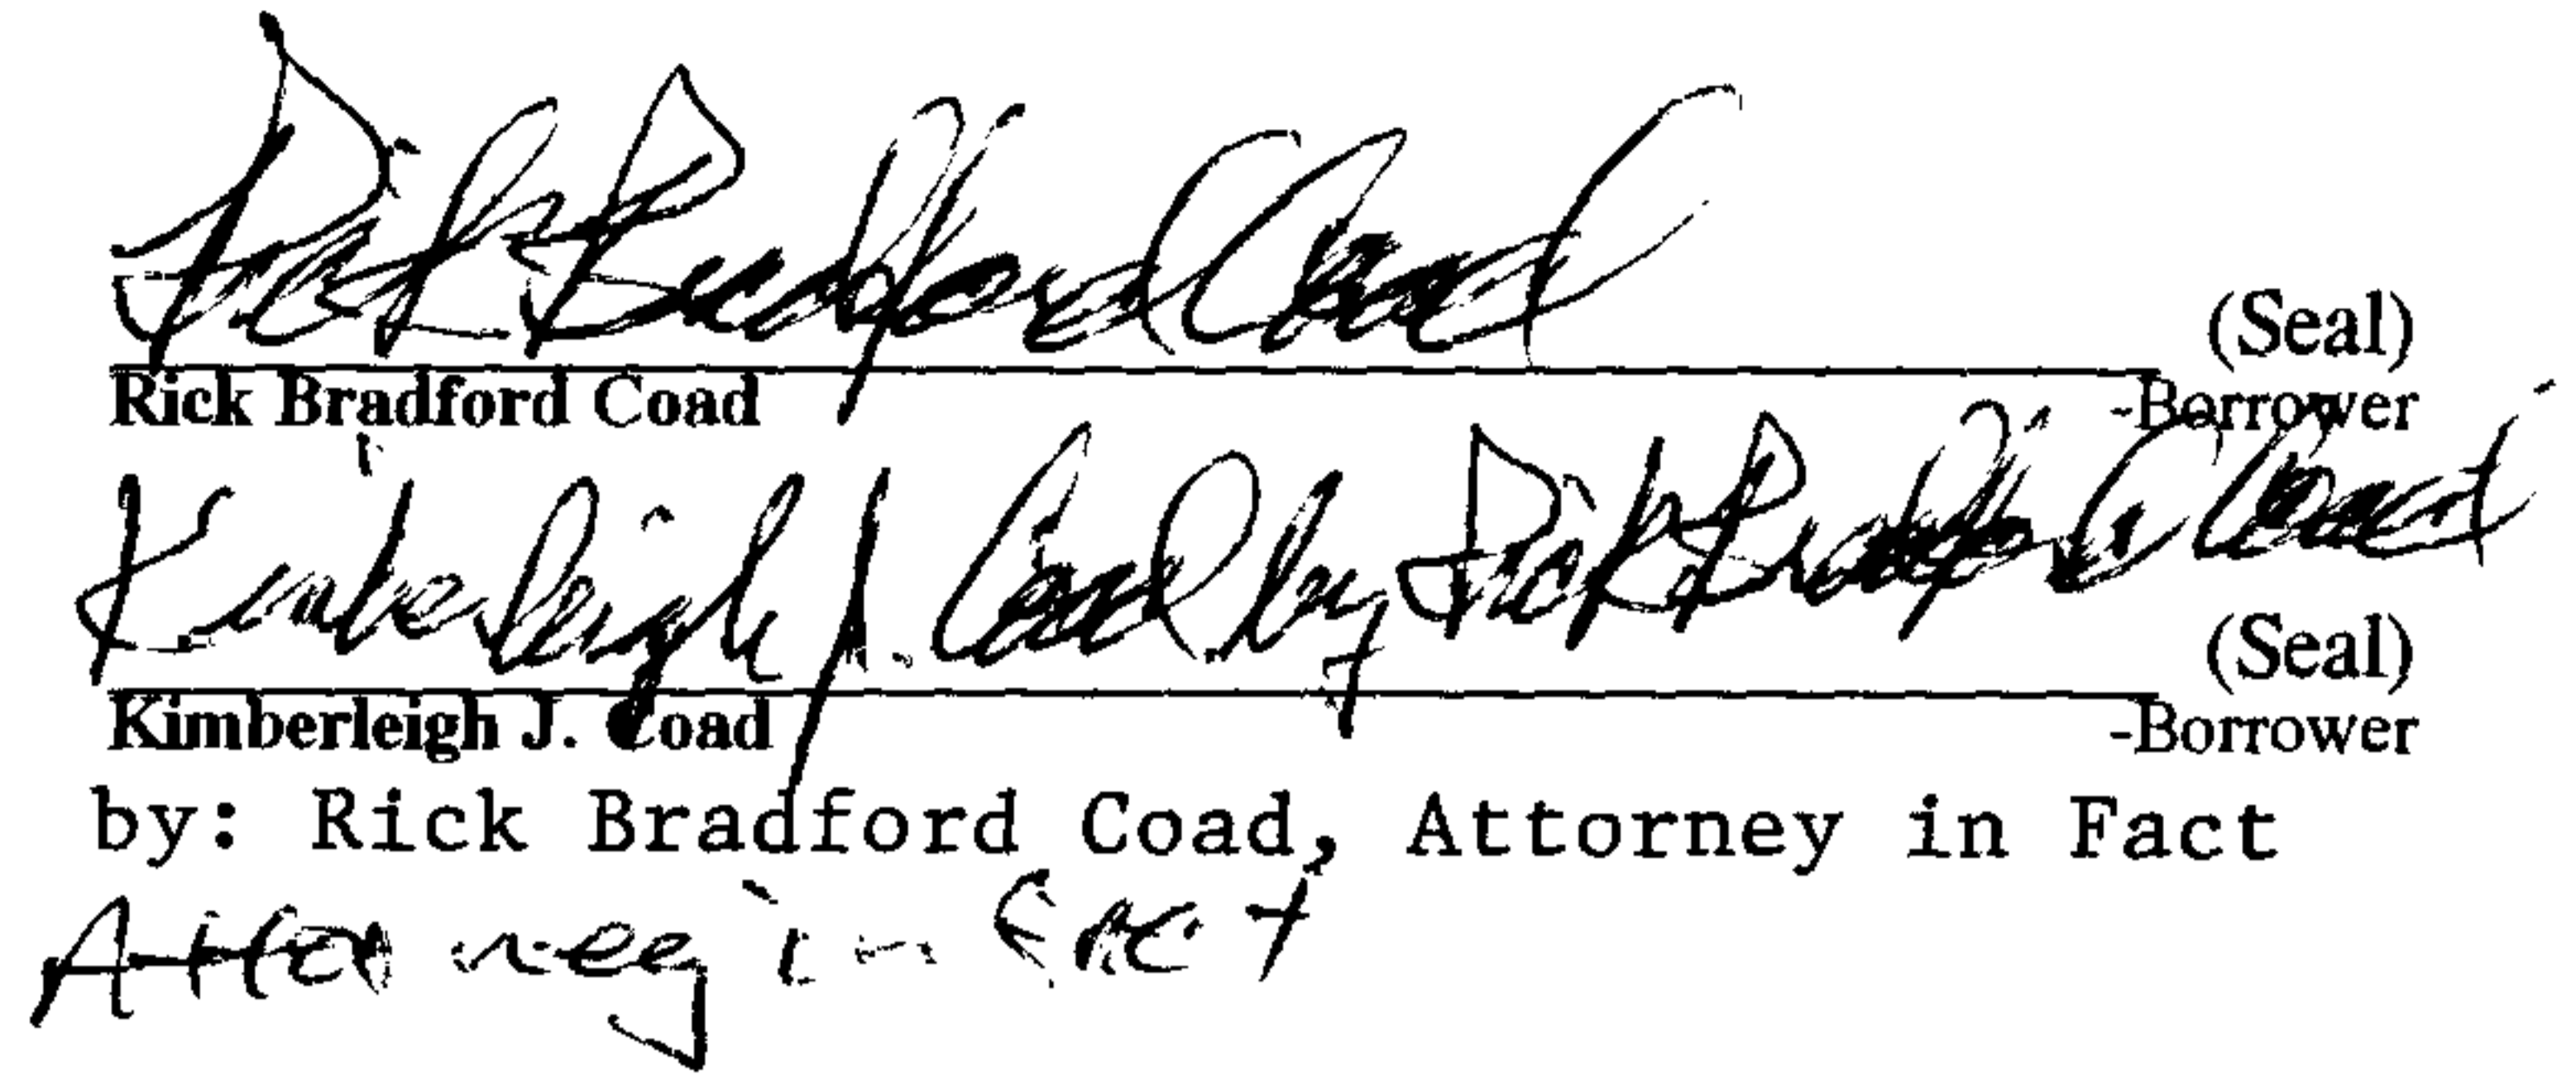 Rick Bradford Coad
(Seal)
Rick Bradford Coad
-Borrower
Kimberleigh J. Coad by Rick Bradford Coad
(Seal)
Kimberleigh J. Coad
-Borrower
by: Rick Bradford Coad, Attorney in Fact
Attorney in Fact